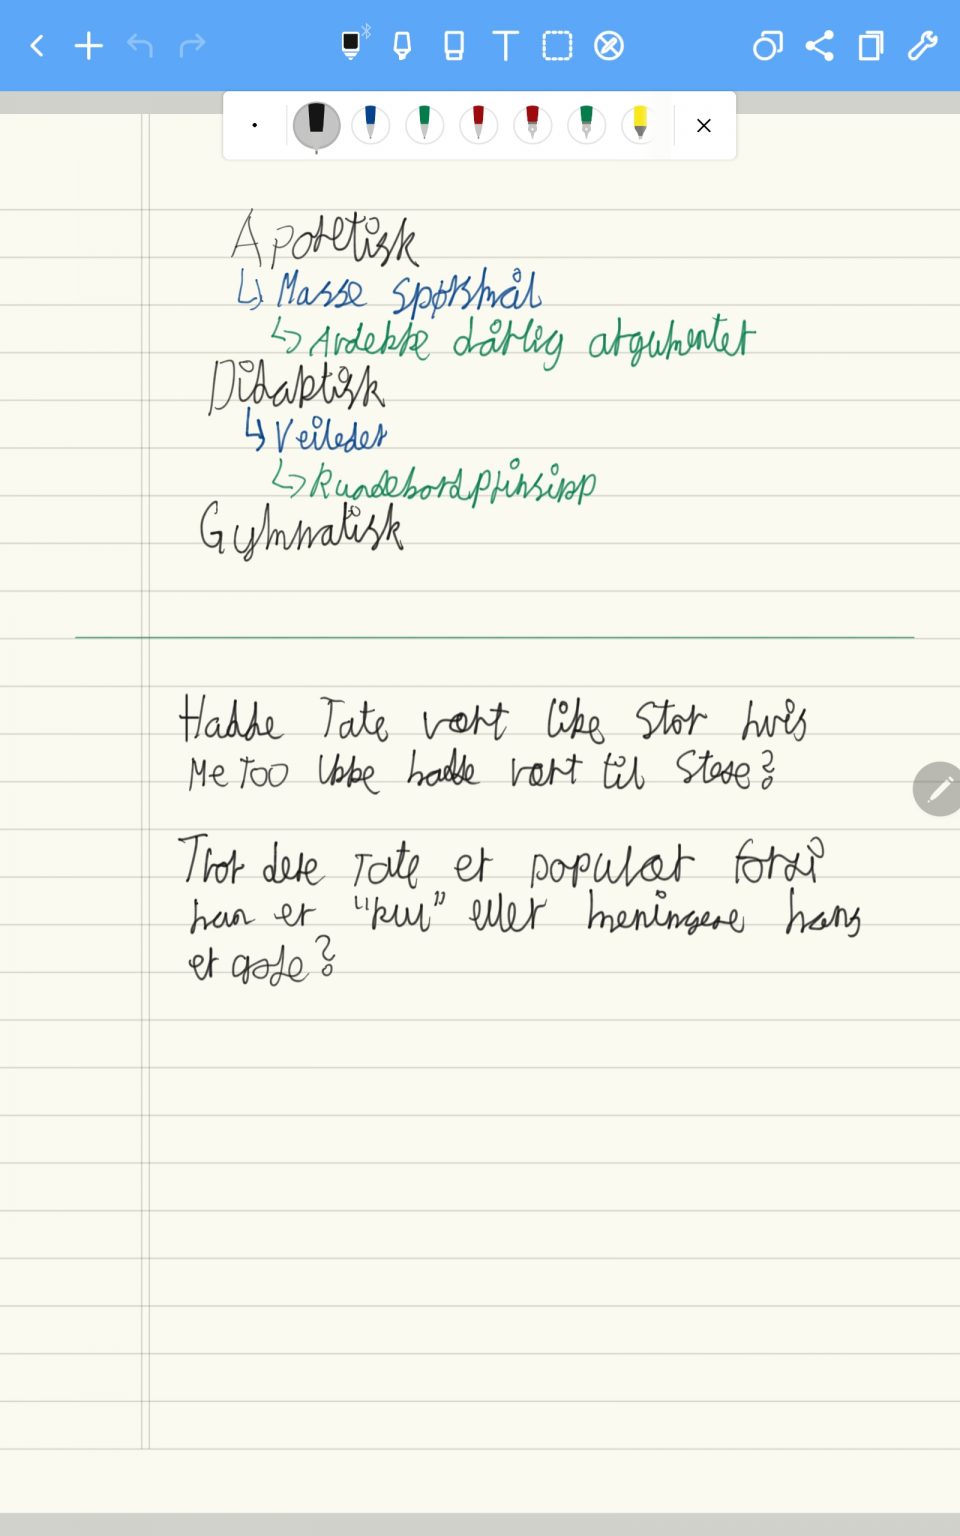 Aporetisk
↳ Masse spørsmål
↳ Avdekke dårlig argumenter
Didaktisk
↳ Veileder
↳ Rundebordprinsipp
Gymnatisk
Hadde Tate vært like stor hvis
Me Too ikke hadde vært til stese?
Tror dere Tate er populær forsi
han er "kul" eller meningene hans
er gose?